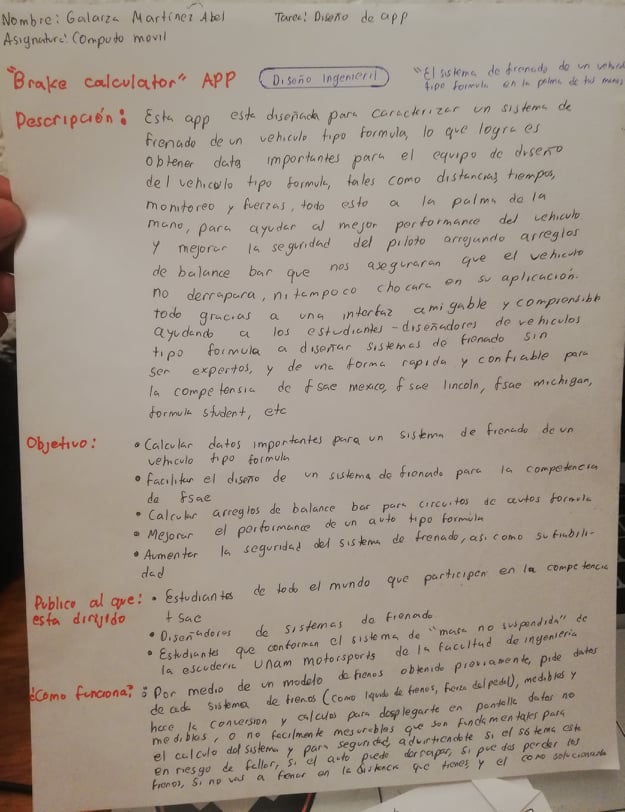 Nombre: Galarza Martínez Abel Tarea: Diseño de app
Asignatura: Computo movil
"Brake calculator" APP Diseño Ingenieril "El sistema de frenado de un vehiculo
tipo formula en la palma de tus manos
Descripción: Esta app esta diseñada para caracterizar un sistema de
frenado de un vehiculo tipo formula, lo que logra es
obtener datos importantes para el equipo de diseño
del vehiculo tipo formula, tales como distancias, tiempos,
monitoreo y fuerzas, todo esto a la palma de la
mano, para ayudar al mejor performance del vehiculo
y mejorar la seguridad del piloto arrojando arreglos
de balance bar que nos aseguraran que el vehiculo
no derrapara, ni tampoco chocara en su aplicación.
todo gracias a una interfaz amigable y comprensible
ayudando a los estudiantes-diseñadores de vehiculos
tipo formula a diseñar sistemas de frenado sin
ser expertos, y de una forma rapida y confiable para
la competensia de fsae mexico, fsae lincoln, fsae michigan,
formula student, etc
Objetivo: • Calcular datos importantes para un sistema de frenado de un
vehiculo tipo formula
• Facilitar el diseño de un sistema de frenado para la competencia
de fsae
• Calcular arreglos de balance bar para circuitos de autos formula
• Mejorar el performance de un auto tipo formula
• Aumentar la seguridad del sistema de frenado, asi como su fiabili-
dad
Publico al que: • Estudiantes de todo el mundo que participen en la competencia
esta dirijido fsae
• Diseñadores de sistemas de frenado.
• Estudiantes que conforman el sistema de "masa no suspendida" de
la escuderia Unam motorsports de la facultad de ingenieria
¿Como funciona?: Por medio de un modelo de frenos obtenido previamente, pide datos
de cada sistema de frenos (como liquido de frenos, fuerza del pedal), medibles y
hace la conversion y calculos para desplegarte en pantalla datos no
medibles, o no facilmente mesurables que son fundamentales para
el calculo del sistema y para seguridad, advirtiendote si el sistema esta
en riesgo de fallar, si el auto puede derrapar, si puedes perder los
frenos, si no vas a frenar en la distancia que tienes y el como solucionarlo